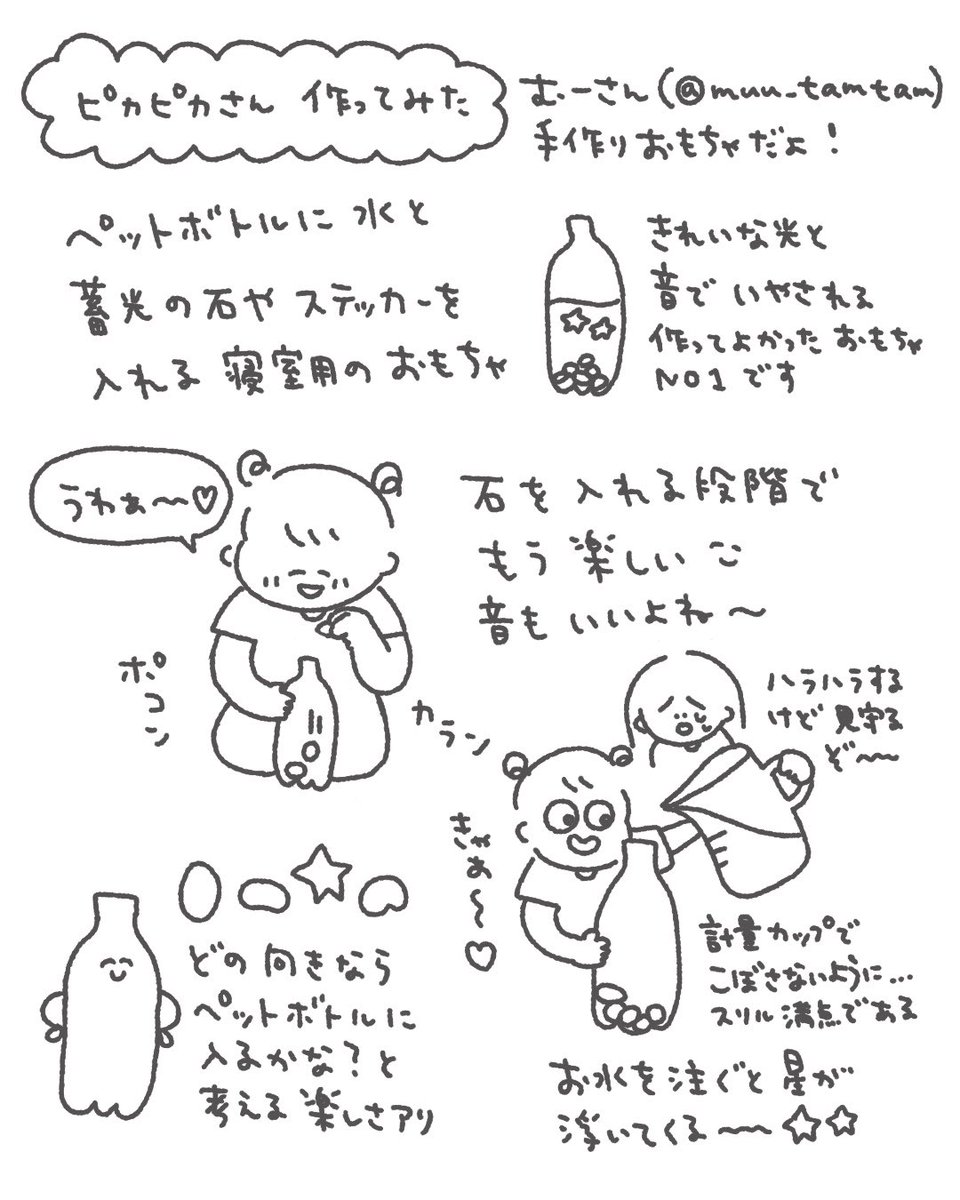 ピカピカさん 作ってみた
むーさん(@muu_tamtam)
手作りおもちゃだよ!
ペットボトルに 水と
蓄光の石や ステッカーを
入れる 寝室用の おもちゃ
きれいな光と
音で いやされる
作ってよかった おもちゃ
NO1です
うわぁ〜♡
石を 入れる段階で
もう 楽しい
音も いいよね〜
ポコン
カラン
ハラハラする
けど 見守る
ぞ〜
きゃあ〜♡
計量カップで
こぼさないように…
スリル満点である
どの 向きなら
ペットボトルに
入るかな?と
考える 楽しさアリ
お水を 注ぐと 星が
浮いてくる〜☆☆